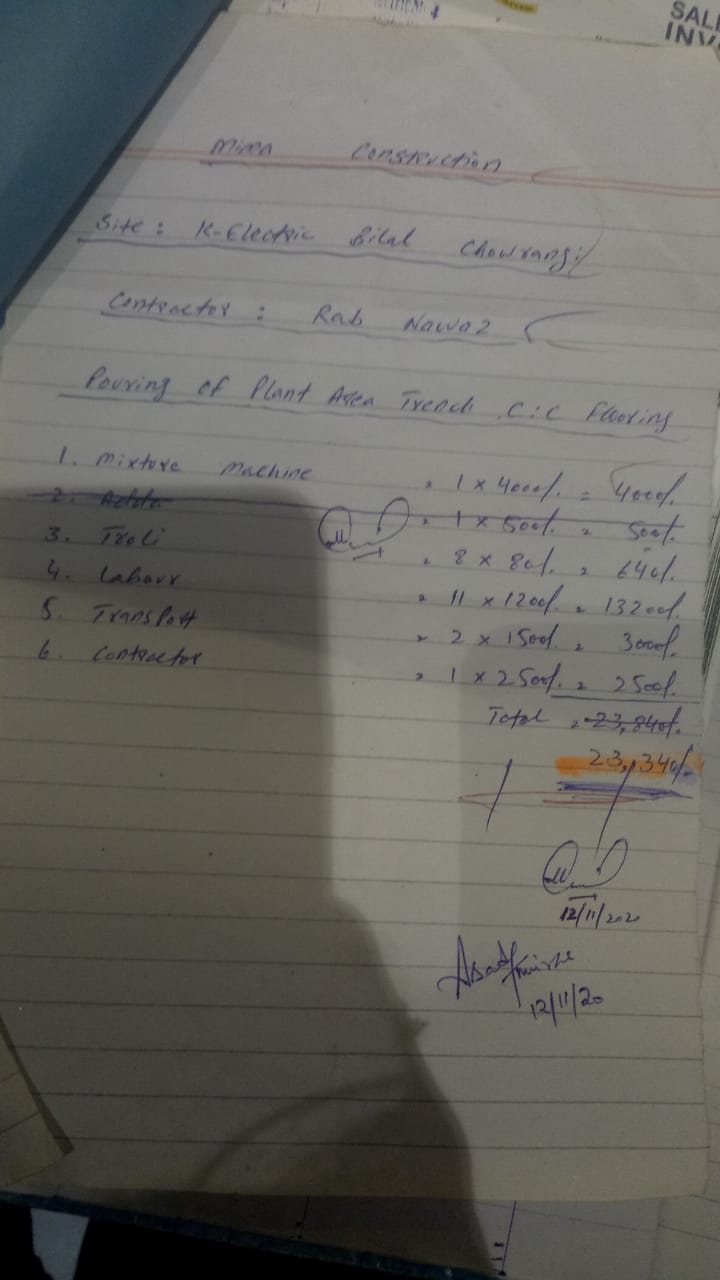 SAL
INV
Mirza Construction
Site: K-Electric Bilal Chowrangi
Contractor: Rab Nawaz
Pouring of Plant Area Trench C.C Flooring
1. Mixture Machine = 1 x 4000/. = 4000/.
2. Adda = 1 x 500/. = 500/.
3. Troli = 8 x 80/. = 640/.
4. Labour = 11 x 1200/. = 13200/.
5. Transport = 2 x 1500/. = 3000/.
6. Contractor = 1 x 2500/. = 2500/.
Total = 23,840/.
23,340/-
12/11/2020
Asad
12/11/20